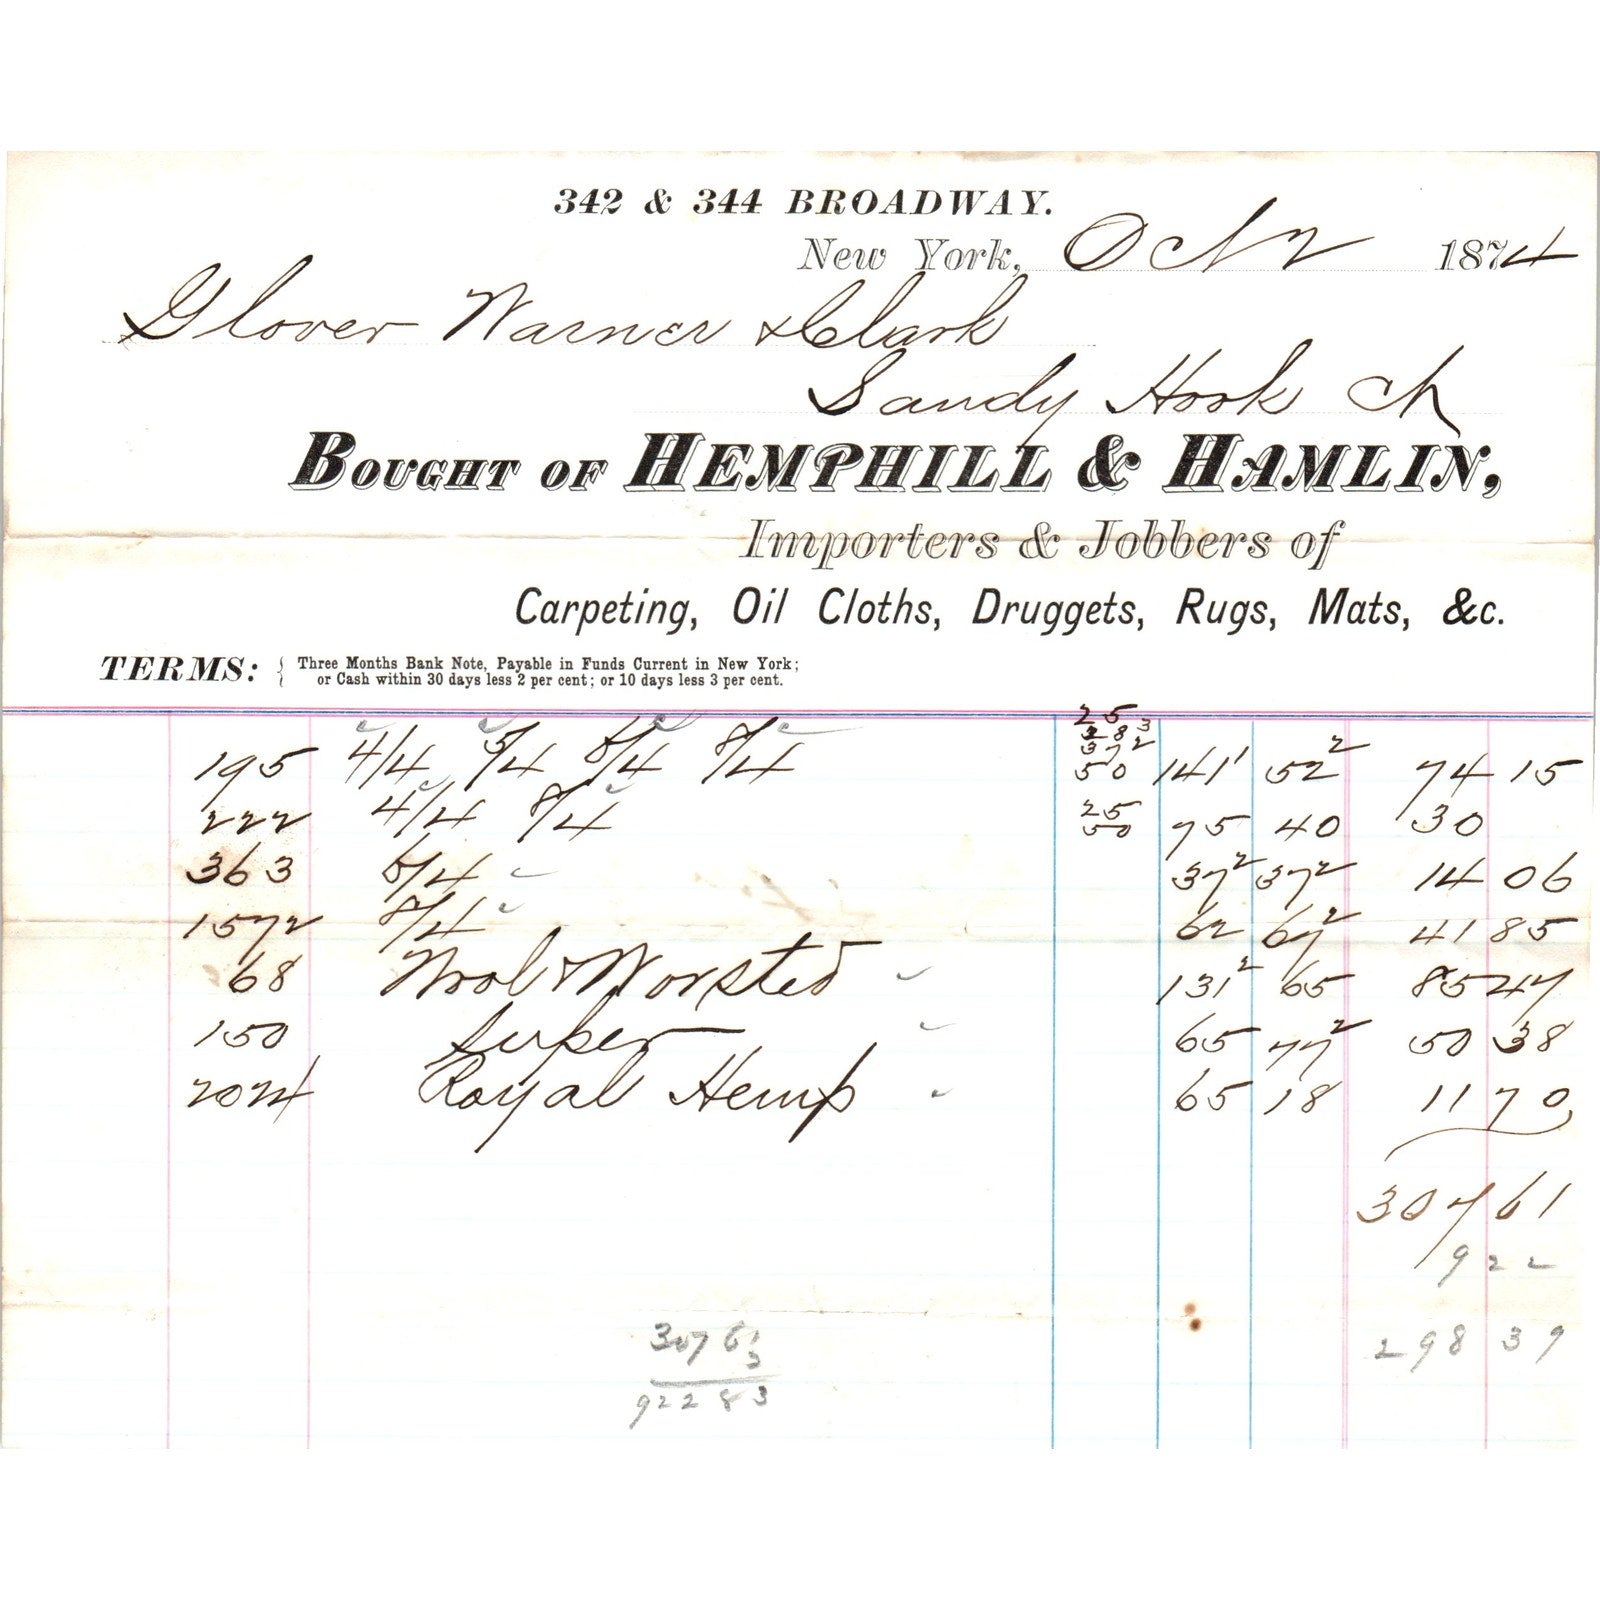 342 & 344 BROADWAY.
New York, Oct 2 1874
Glover Warner & Clark
Sandy Hook Ct
BOUGHT OF HEMPHILL & HAMLIN,
Importers & Jobbers of
Carpeting, Oil Cloths, Druggets, Rugs, Mats, &c.
TERMS: { Three Months Bank Note, Payable in Funds Current in New York;
or Cash within 30 days less 2 per cent; or 10 days less 3 per cent.
25
28 3
37 2
195 4/4 5/4 6/4 8/4 50 141 1 52 2 74 15
25
222 4/4 8/4 50 75 40 30
363 6/4 37 2 37 2 14 06
1572 8/4 62 67 2 41 85
68 Wool & Worsted 131 2 65 85 47
150 Super 65 77 2 50 38
2024 Royal Hemp 65 18 11 70
307 61
9 22
298 39
307 61
3
922 83